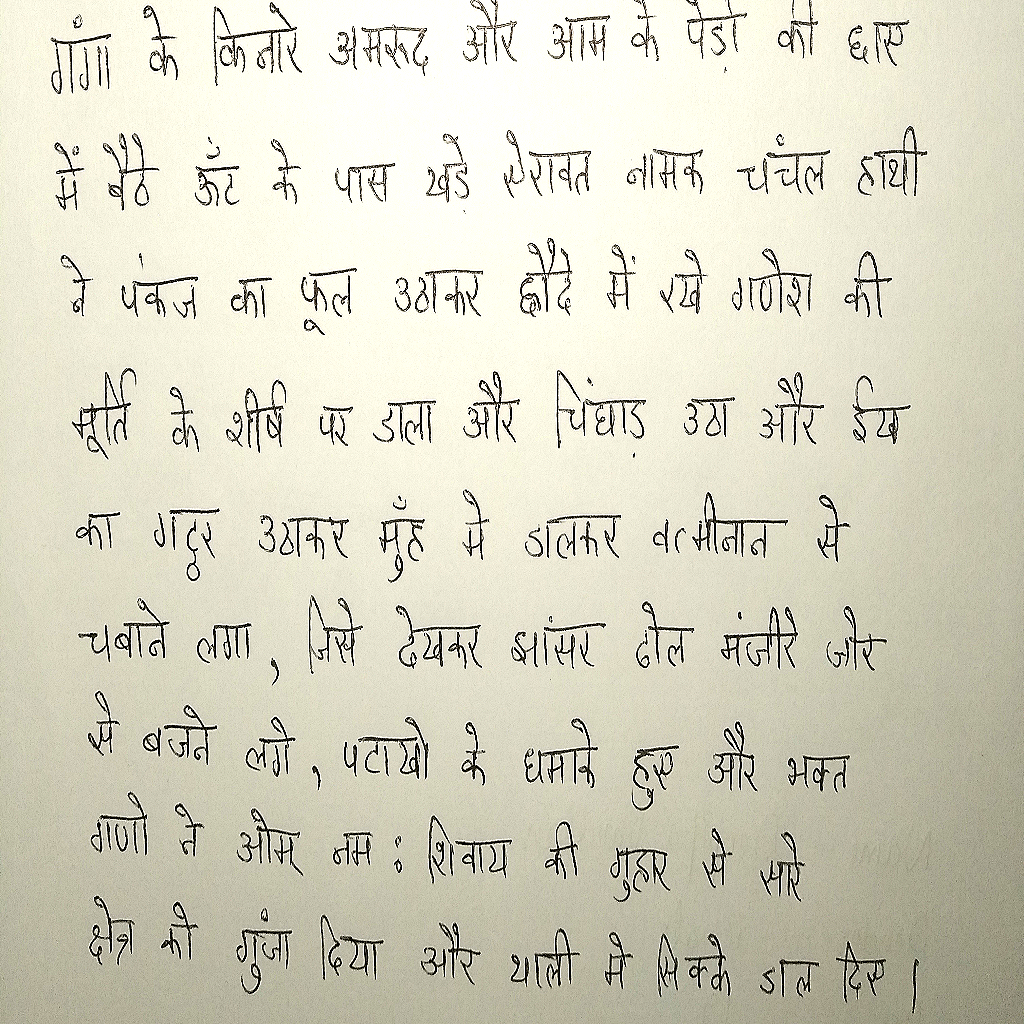 गंगा के किनारे अमरुद और आम के पेड़ो की छाए
में बैठे ऊँट के पास खड़े ऐरावत नामक चंचल हाथी
ने पंकज का फूल उठाकर हौदे में रखे गणेश की
मूर्ति के शीर्ष पर डाला और चिंघाड़ उठा और ईख
का गट्ठर उठाकर मुँह मे डालकर इत्मीनान से
चबाने लगा, जिसे देखकर झांसर ढोल मंजीरे जोर
से बजने लगे, पटाखो के धमाके हुए और भक्त
गणो ने ओम् नम: शिवाय की गुहार से सारे
क्षेत्र को गुंजा दिया और थाली मे सिक्के डाल दिए।